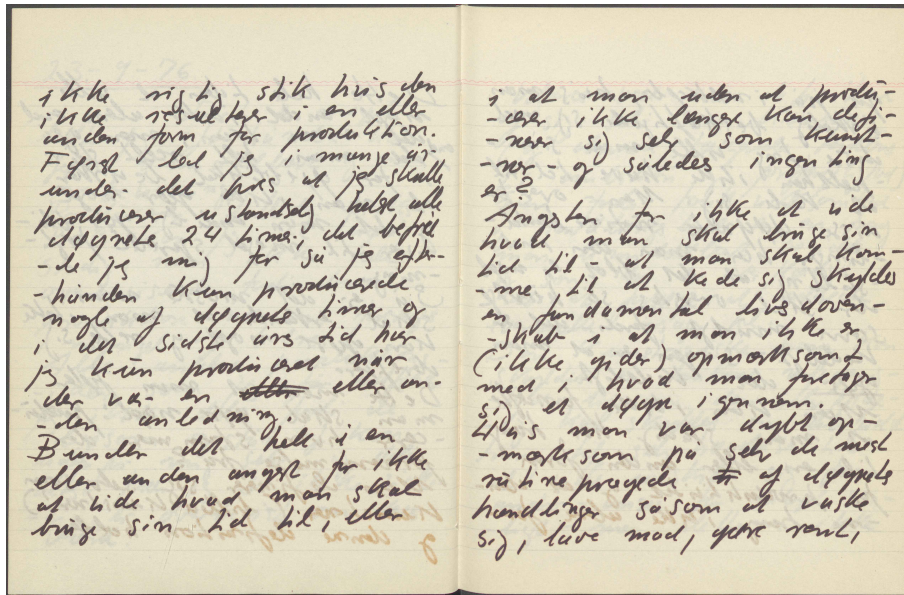 23-9-76
ikke rigtig stik hvis den
ikke resulterer i en eller
anden form for produktion.
Først lod jeg i mange år
under det pres at jeg skulle
producerer ustandselig helst alle
døgnets 24 timer, det befrid
-de jeg mig for så jeg efter-
-hånden kun producerede
nogle af døgnets timer og
i det sidste års tid har
jeg kun produceret når
der var en eller an-
-den anledning.
Bunder det hele i en
eller anden angst for ikke
at vide hvad man skal
bruge sin tid til, eller
i at man uden at produ-
-cerer ikke længere kan defi-
-nerer sig selv som kunst-
-ner - og således ingenting
er?
Angsten for ikke at vide
hvad man skal bruge sin
tid til - at man skal kom-
-me til at kede sig skyldes
en fundamental livsdoven-
-skab i at man ikke er
(ikke gider) opmærksom
med i hvad man foretager
sig et døgn igennem.
Hvis man var dybt op-
-mærksom på selv de mest
rutineprægede af døgnets
handlinger såsom at vaske
sig, lave mad, gøre rent,